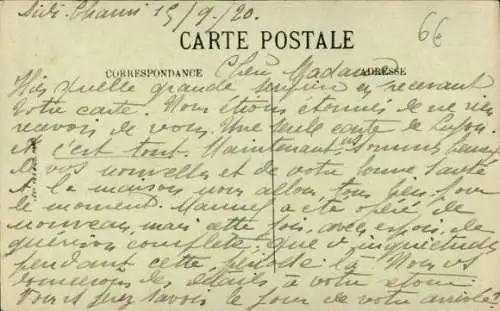 Sidi-Chami 15/9/20.
6€
CARTE POSTALE
CORRESPONDANCE
ADRESSE
Chère Madame
Hier quelle grande surprise en recevant
votre carte. Nous étions étonnés de ne rien
recevoir de vous. Une seule carte de Luçon
et c'est tout. Maintenant ns sommes
de vos nouvelles et de votre bonne santé
A la maison nous allons tous bien pour
le moment. a été opéré de
nouveau, mais cette fois, avec espoir, de
guérison complète. Que d'inquiétude
pendant cette période là. Nous vs
donnerons des détails à votre retour.
le jour de votre arrivée?